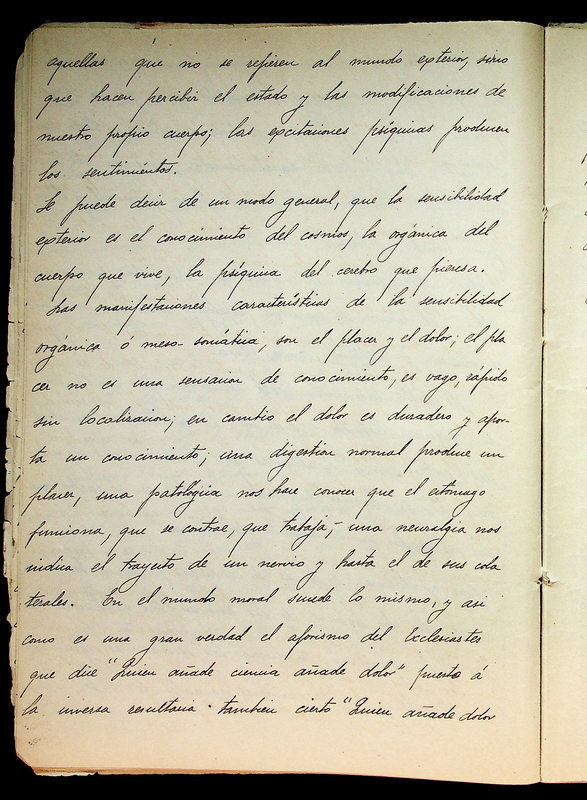 aquellas que no se refieren al mundo exterior, sino
que hacen percibir el estado y las modificaciones de
nuestro propio cuerpo; las excitaciones psíquicas producen
los sentimientos.
Se puede decir de un modo general, que la sensibilidad
exterior es el conocimiento del cosmos, la orgánica del
cuerpo que vive, la psíquica del cerebro que piensa.
Las manifestaciones características de la sensibilidad
orgánica ó meso-somática, son el placer y el dolor; el pla
cer no es una sensacion de conocimiento, es vago, rápido
sin localizacion; en cambio el dolor es duradero y apor-
ta un conocimiento; una digestion normal produce un
placer, una patológica nos hace conocer que el estomago
funciona, que se contrae, que trabaja; una neuralgia nos
indica el trayecto de un nervio y hasta el de sus cola
terales. En el mundo moral sucede lo mismo, y asi
como es una gran verdad el aforismo del Ecclesiastes
que dice "Quien añade ciencia añade dolor" puesto á
la inversa resultaria tambien cierto "Quien añade dolor